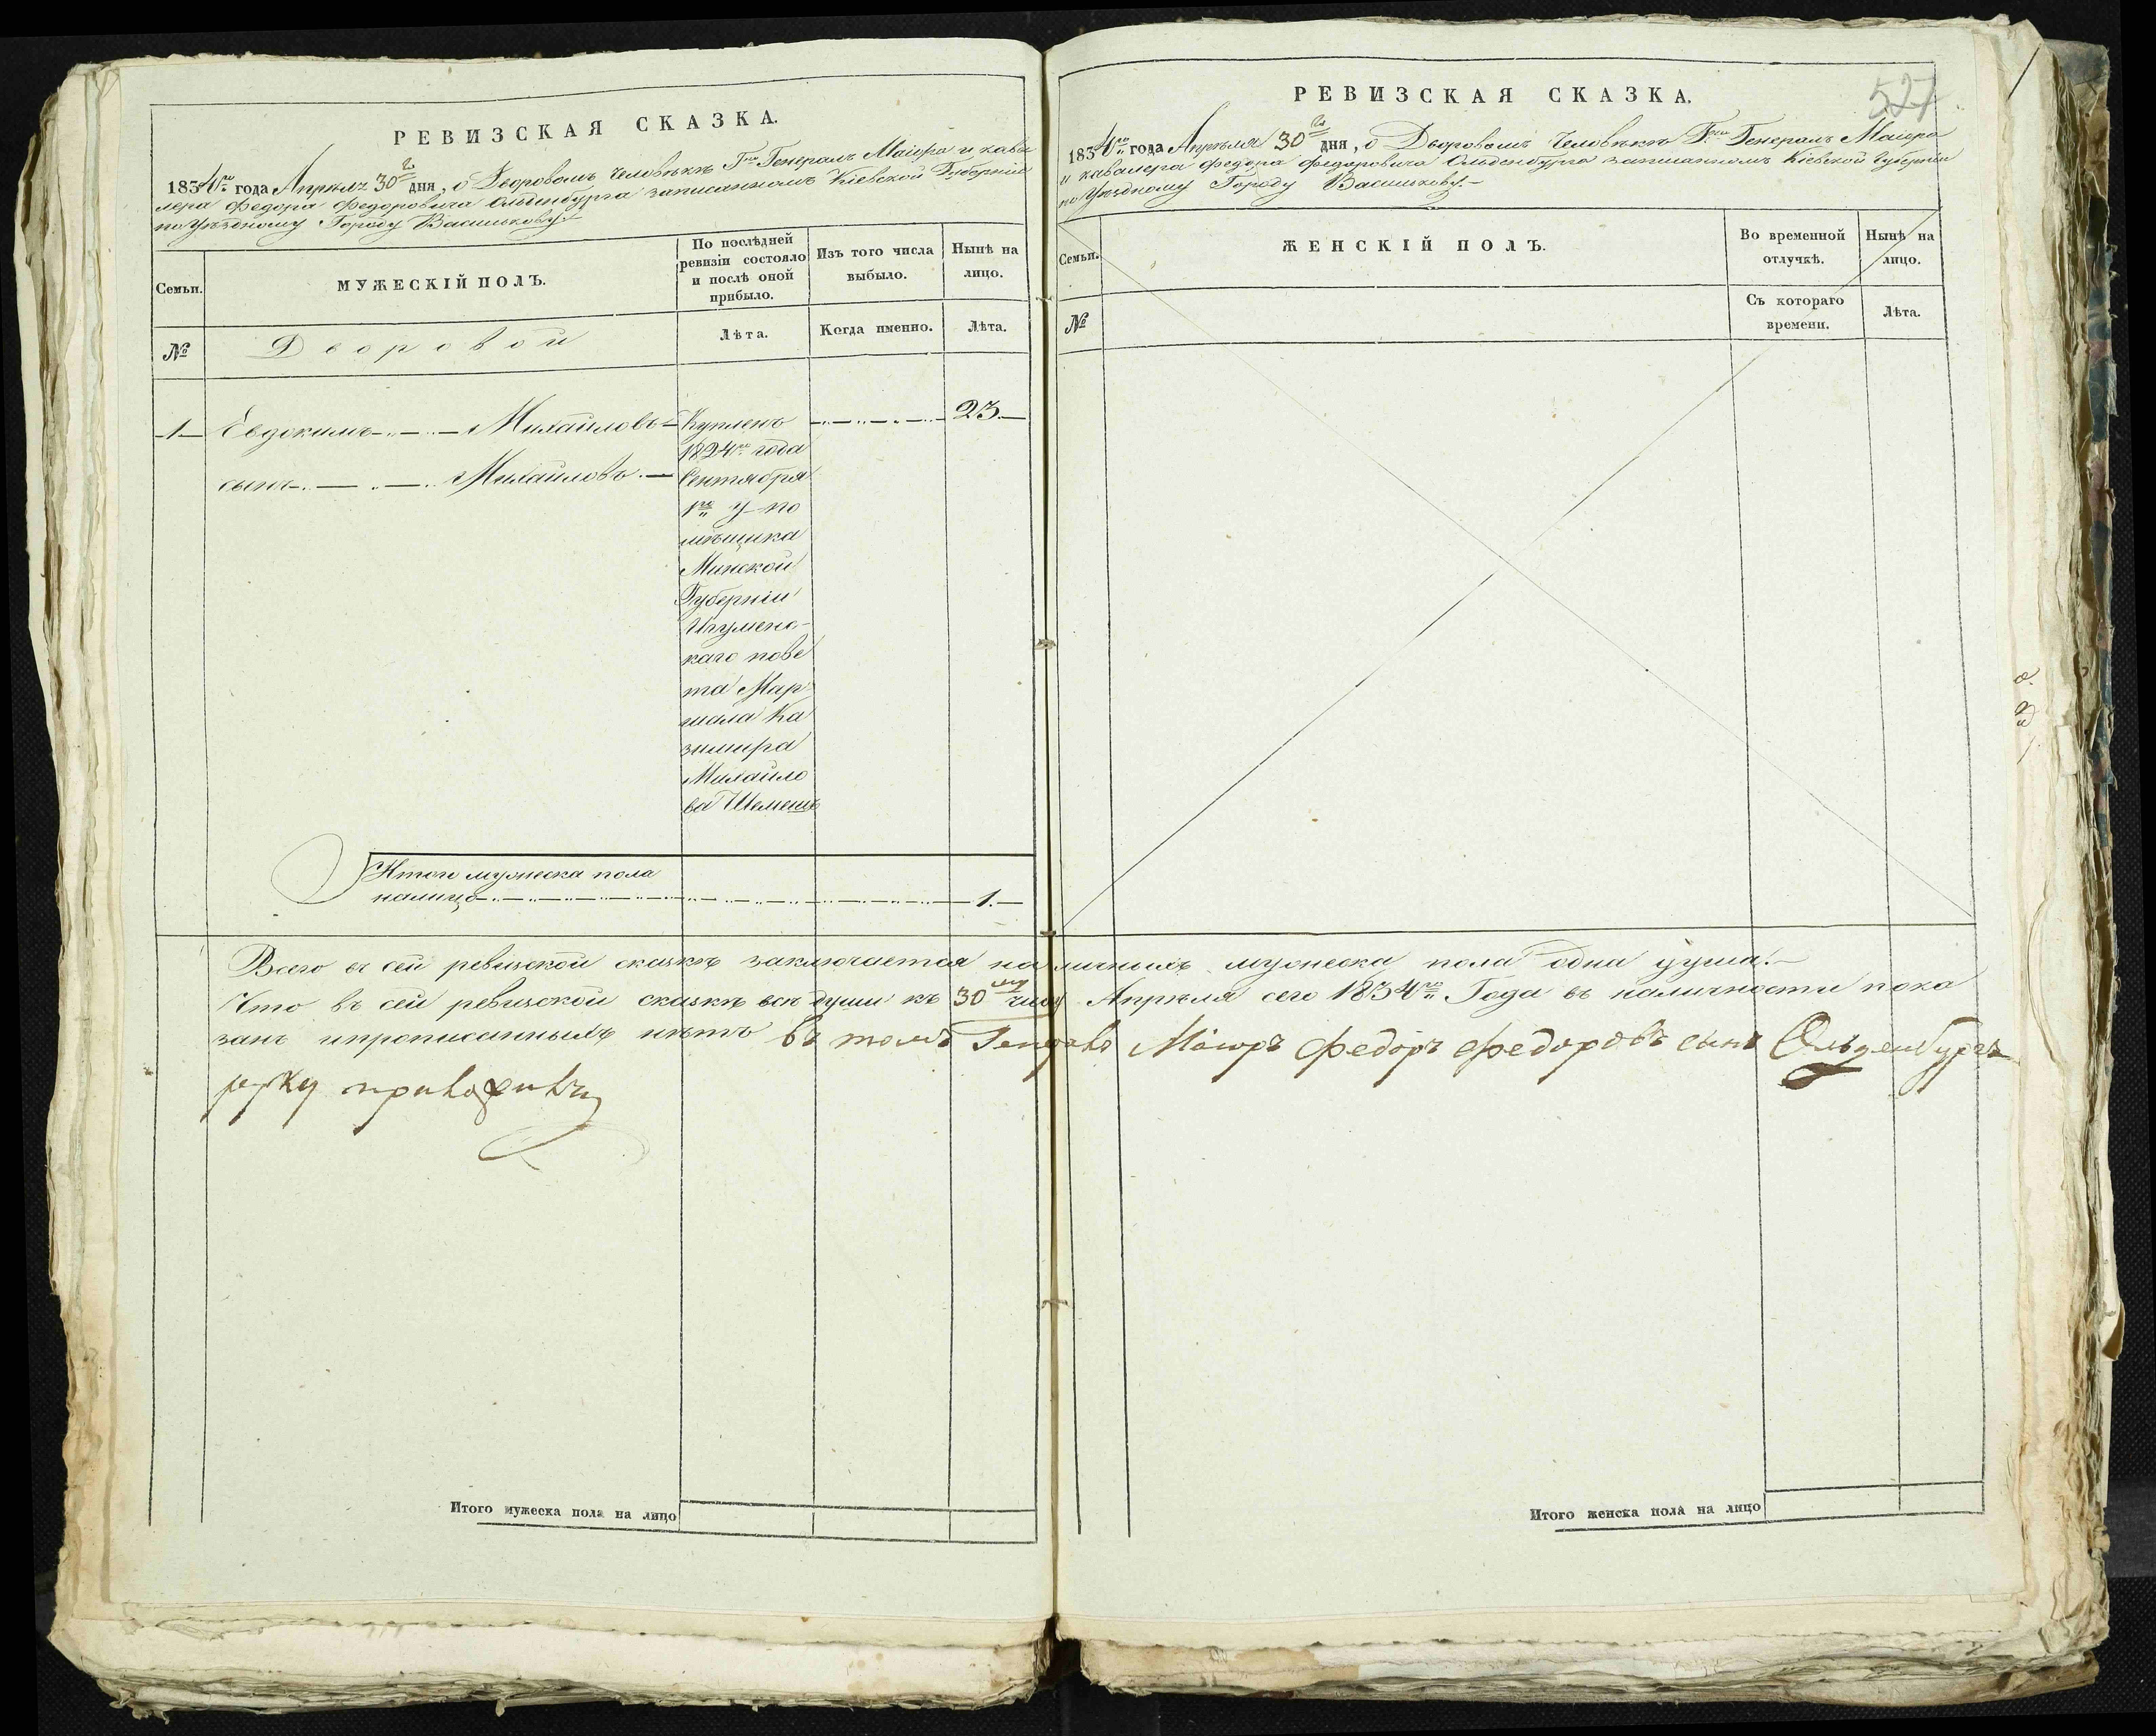 РЕВИЗСКАЯ СКАЗКА.
1834го года Апрѣля 30го дня, о Дворовомъ человѣкѣ Гна Генералъ Маіора и кава
лера Федора Федоровича Ольденбурга записанномъ Кіевской Губерніи
по Уѣздному Городу Василькову.
Семьи.
МУЖЕСКІЙ ПОЛЪ.
По послѣдней
ревизіи состояло
и послѣ оной
прибыло.
Изъ того числа
выбыло.
Нынѣ на
лицо.
№
Дворовой
Лѣта.
Когда именно.
Лѣта.
1 Евдокимъ Михайловъ Купленъ 23
1824го года
сынъ Михайловъ Сентября
1го у по
мѣщика
Минской
Губерніи
Игуменс-
каго пове
та Мар
шала Ка
зимира
Михайло
ва
Итого мужеска пола
налицо 1.
РЕВИЗСКАЯ СКАЗКА.
527
1834го года Апрѣля 30го дня, о Дворовомъ человѣкѣ Гна Генералъ Маіора
и кавалера Федора Федоровича Ольденбурга записанномъ Кіевской Губерніи
по Уѣздному Городу Василькову.
Семьи.
ЖЕНСКІЙ ПОЛЪ.
Во временной
отлучкѣ.
Нынѣ на
лицо.
№
Съ котораго
времени.
Лѣта.
Всего въ сей ревизской сказкѣ заключается наличныхъ мужеска пола одна душа.
Что въ сей ревизской сказкѣ всѣ души къ 30му числу Апрѣля сего 1834го Года въ наличности пока
заны и прописанныхъ нѣтъ въ томъ Генералъ Маіоръ Федоръ Федоровъ сынъ Ольденбургъ
руку приложилъ
Итого мужеска пола на лицо
Итого женска пола на лицо